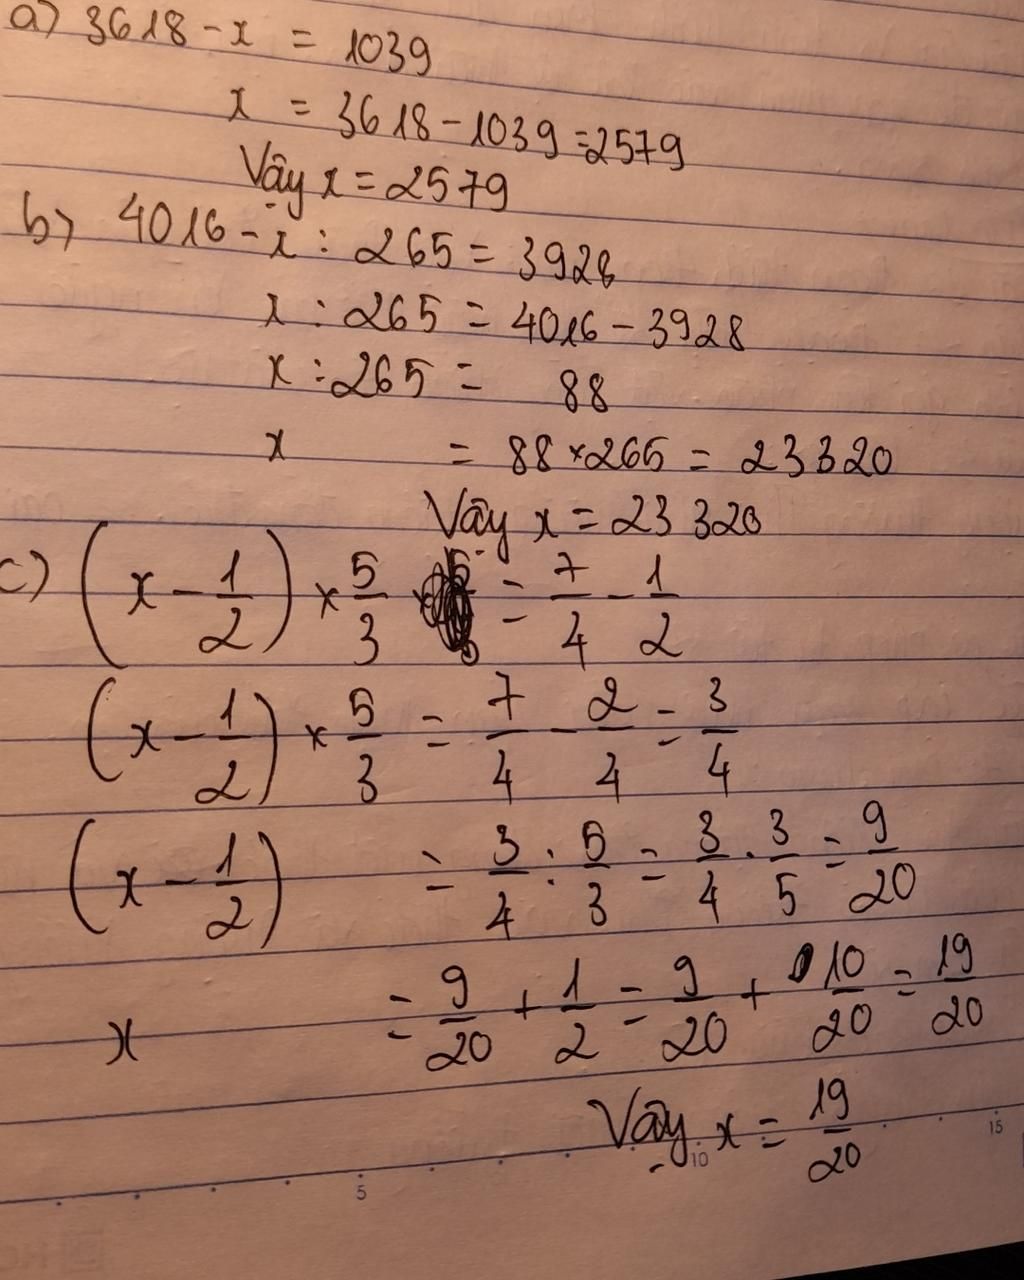 a) 3618 - x = 1039
x = 3618 - 1039 = 2579
Vậy x = 2579
b) 4016 - x : 265 = 3928
x : 265 = 4016 - 3928
x : 265 = 88
x = 88 × 265 = 23320
Vậy x = 23 320
c) (x - 1/2) × 5/3 = 7/4 - 1/2
(x - 1/2) × 5/3 = 7/4 - 2/4 = 3/4
(x - 1/2) = 3/4 : 5/3 = 3/4 . 3/5 = 9/20
x = 9/20 + 1/2 = 9/20 + 10/20 = 19/20
Vậy x = 19/20
5 10 15